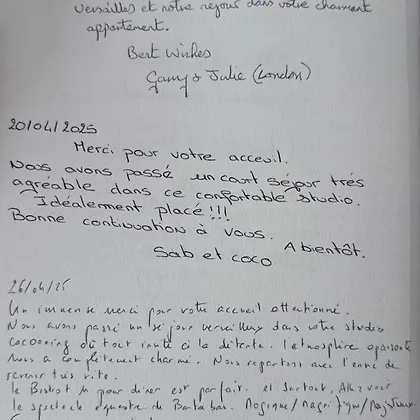 Versailles et notre séjour dans votre charmant
appartement.
Best Wishes
Gamy & Julie (London)
20/04/2025
Merci pour votre acceuil.
Nous avons passé un court séjour très
agréable dans ce confortable studio.
Idéalement placé!!!
Bonne continuation à vous.
A bientôt.
Sab et coco
26/04/25
Un immense merci pour votre accueil attentionné.
Nous avons passé un séjour merveilleux dans votre studio
cocooning où tout invite à la détente. L'atmosphère apaisante
nous a complètement charmé. Nous repartons avec l'envie de
revenir très vite.
Le Bistrot pour diner est parfait. et surtout, Allez voir
le spectacle équestre de Bartabas. Magique/magnifique/Majestueux